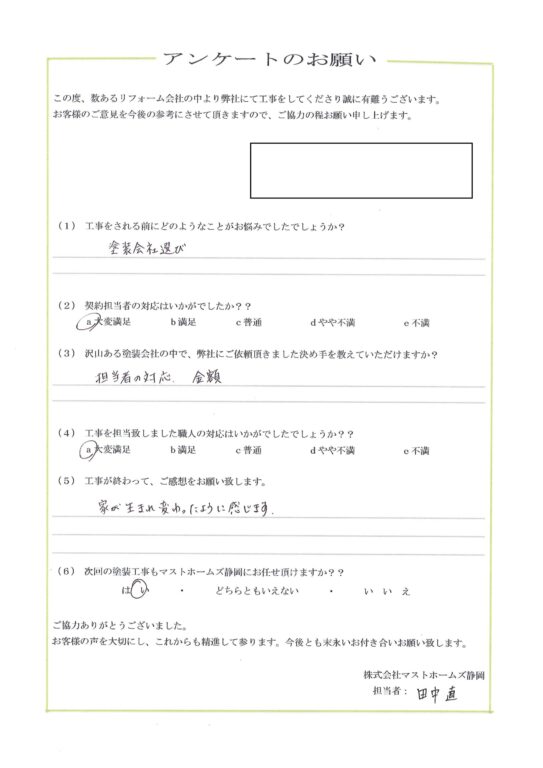 アンケートのお願い
この度、数あるリフォーム会社の中より弊社にて工事をしてくださり誠に有難うございます。
お客様のご意見を今後の参考にさせて頂きますので、ご協力の程お願い申し上げます。
(1) 工事をされる前にどのようなことがお悩みでしたでしょうか？
塗装会社選び
(2) 契約担当者の対応はいかがでしたか？？
a大変満足 b満足 c普通 dやや不満 e不満
(3) 沢山ある塗装会社の中で、弊社にご依頼頂きました決め手を教えていただけますか？
担当者の対応. 金額
(4) 工事を担当致しました職人の対応はいかがでしたでしょうか？？
a大変満足 b満足 c普通 dやや不満 e不満
(5) 工事が終わって、ご感想をお願い致します。
家が生まれ変わったように感じます.
(6) 次回の塗装工事もマストホームズ静岡にお任せ頂けますか？？
はい ・ どちらともいえない ・ いいえ
ご協力ありがとうございました。
お客様の声を大切にし、これからも精進して参ります。今後とも末永いお付き合いお願い致します。
株式会社マストホームズ静岡
担当者： 田中 直